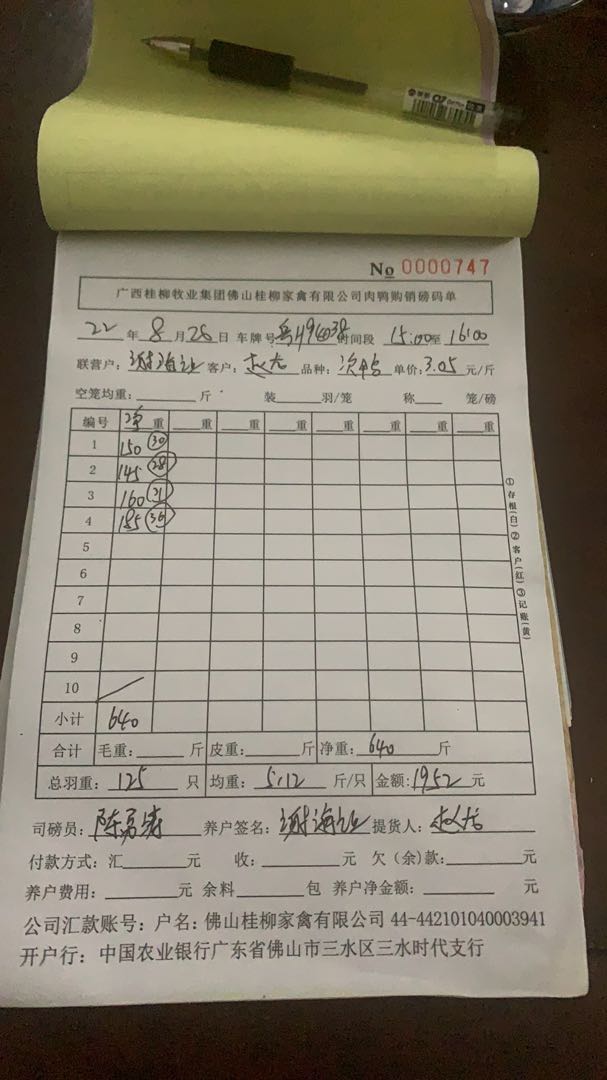 No 0000747
广西桂柳牧业集团佛山桂柳家禽有限公司肉鸭购销磅码单
22年8月26日 车牌号 时间段 15:00至16:00
联营户: 客户: 品种: 次鸭 单价:3.05元/斤
空笼均重:______斤 装____羽/笼 称___笼/磅
编号 净重 重 重 重 重 重 重 重
1 150 (30)
2 145 (28)
3 160 (31)
4 185 (36)
5
6
7
8
9
10
小计 640
合计 毛重:______斤 皮重:______斤 净重:640斤
总羽重:125只 均重:5.12斤/只 金额:1952元
司磅员: 养户签名: 提货人:
付款方式:汇______元 收:______元 欠(余)款:______元
养户费用:______元 余料______包 养户净金额:______元
公司汇款账号:户名:佛山桂柳家禽有限公司 44-442101040003941
开户行:中国农业银行广东省佛山市三水区三水时代支行
①存根(白)②客户(红)③记账(黄)